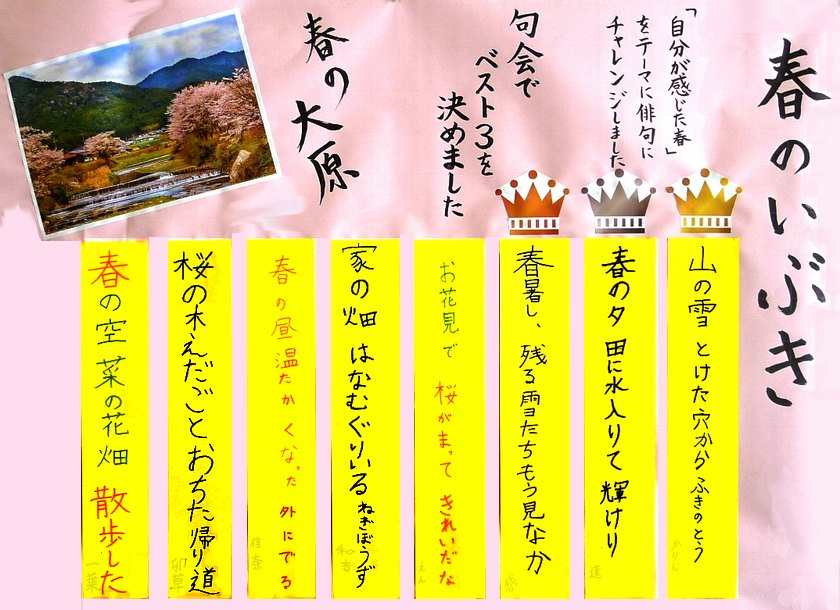 春のいぶき
「自分が感じた春」
をテーマに俳句に
チャレンジしました
句会で
ベスト3を
決めました
春の大原
山の雪 とけた穴から ふきのとう
かりん
春の夕 田に水入りて 輝けり
蓮
春暑し、残る雪たちもう見なか
感
お花見で 桜がまって きれいだな
えん
家の畑 はなむぐりいる ねぎぼうず
和杏
春の昼 温たかくなった 外にでる
佳奈
桜の木 えだごとおちた 帰り道
卯草
春の空 菜の花畑 散歩した
一葉